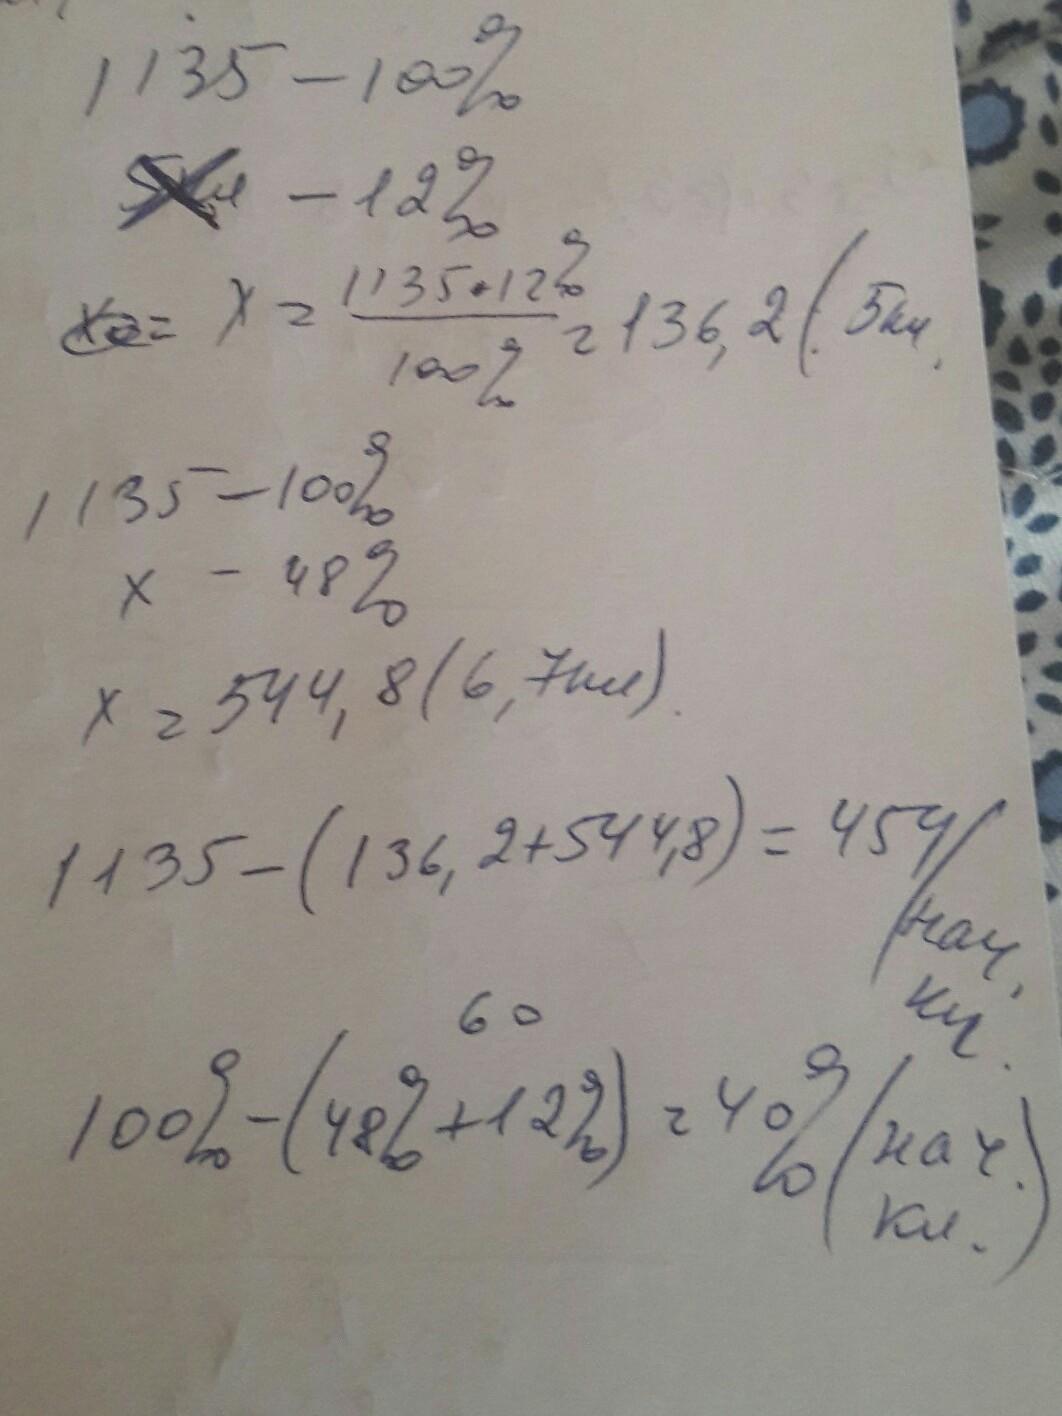 1135 – 100%
– 12%
x = 1135·12% / 100% = 136,2 (5кл.
1135 – 100%
x – 48%
x = 544,8 (6,7кл).
1135 – (136,2+544,8) = 454 (нач. кл.
60
100% – (48%+12%) = 40% (нач. кл.)